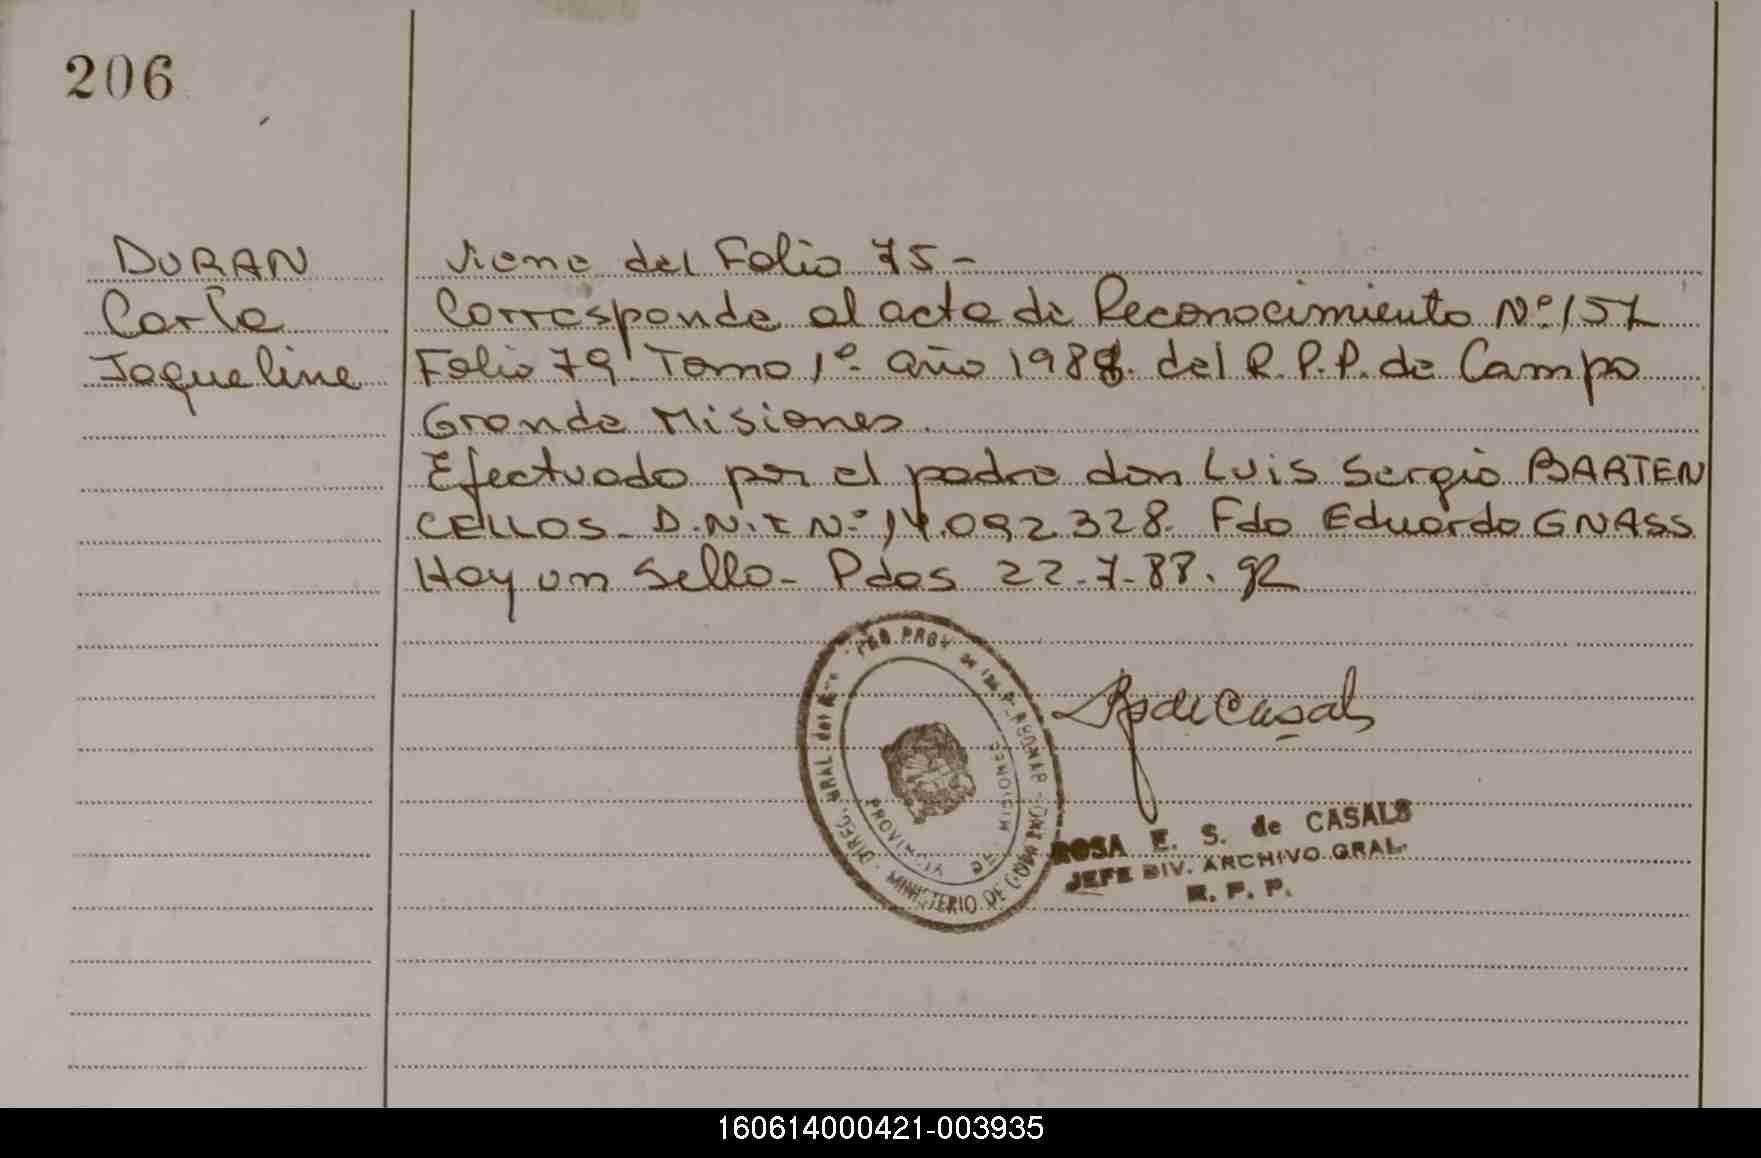 206
DURAN
Carla
Jaqueline
Viene del Folio 75-
Corresponde al acta de Reconocimiento Nº 157
Folio 79 Tomo 1º. año 1988. del R.P.P. de Campo
Grande Misiones.
Efectuado por el padre don Luis Sergio BARTEN
CELLOS- D.N.I Nº 14.092.328. Fdo Eduardo GNASS
Hay un sello- Pdas 22-7-88.
DIREC. GRAL del
MINISTERIO DE
PROVINCIA DE MISIONES
ROSA E. S. de CASALS
JEFE DIV. ARCHIVO GRAL.
R. P. P.
160614000421-003935